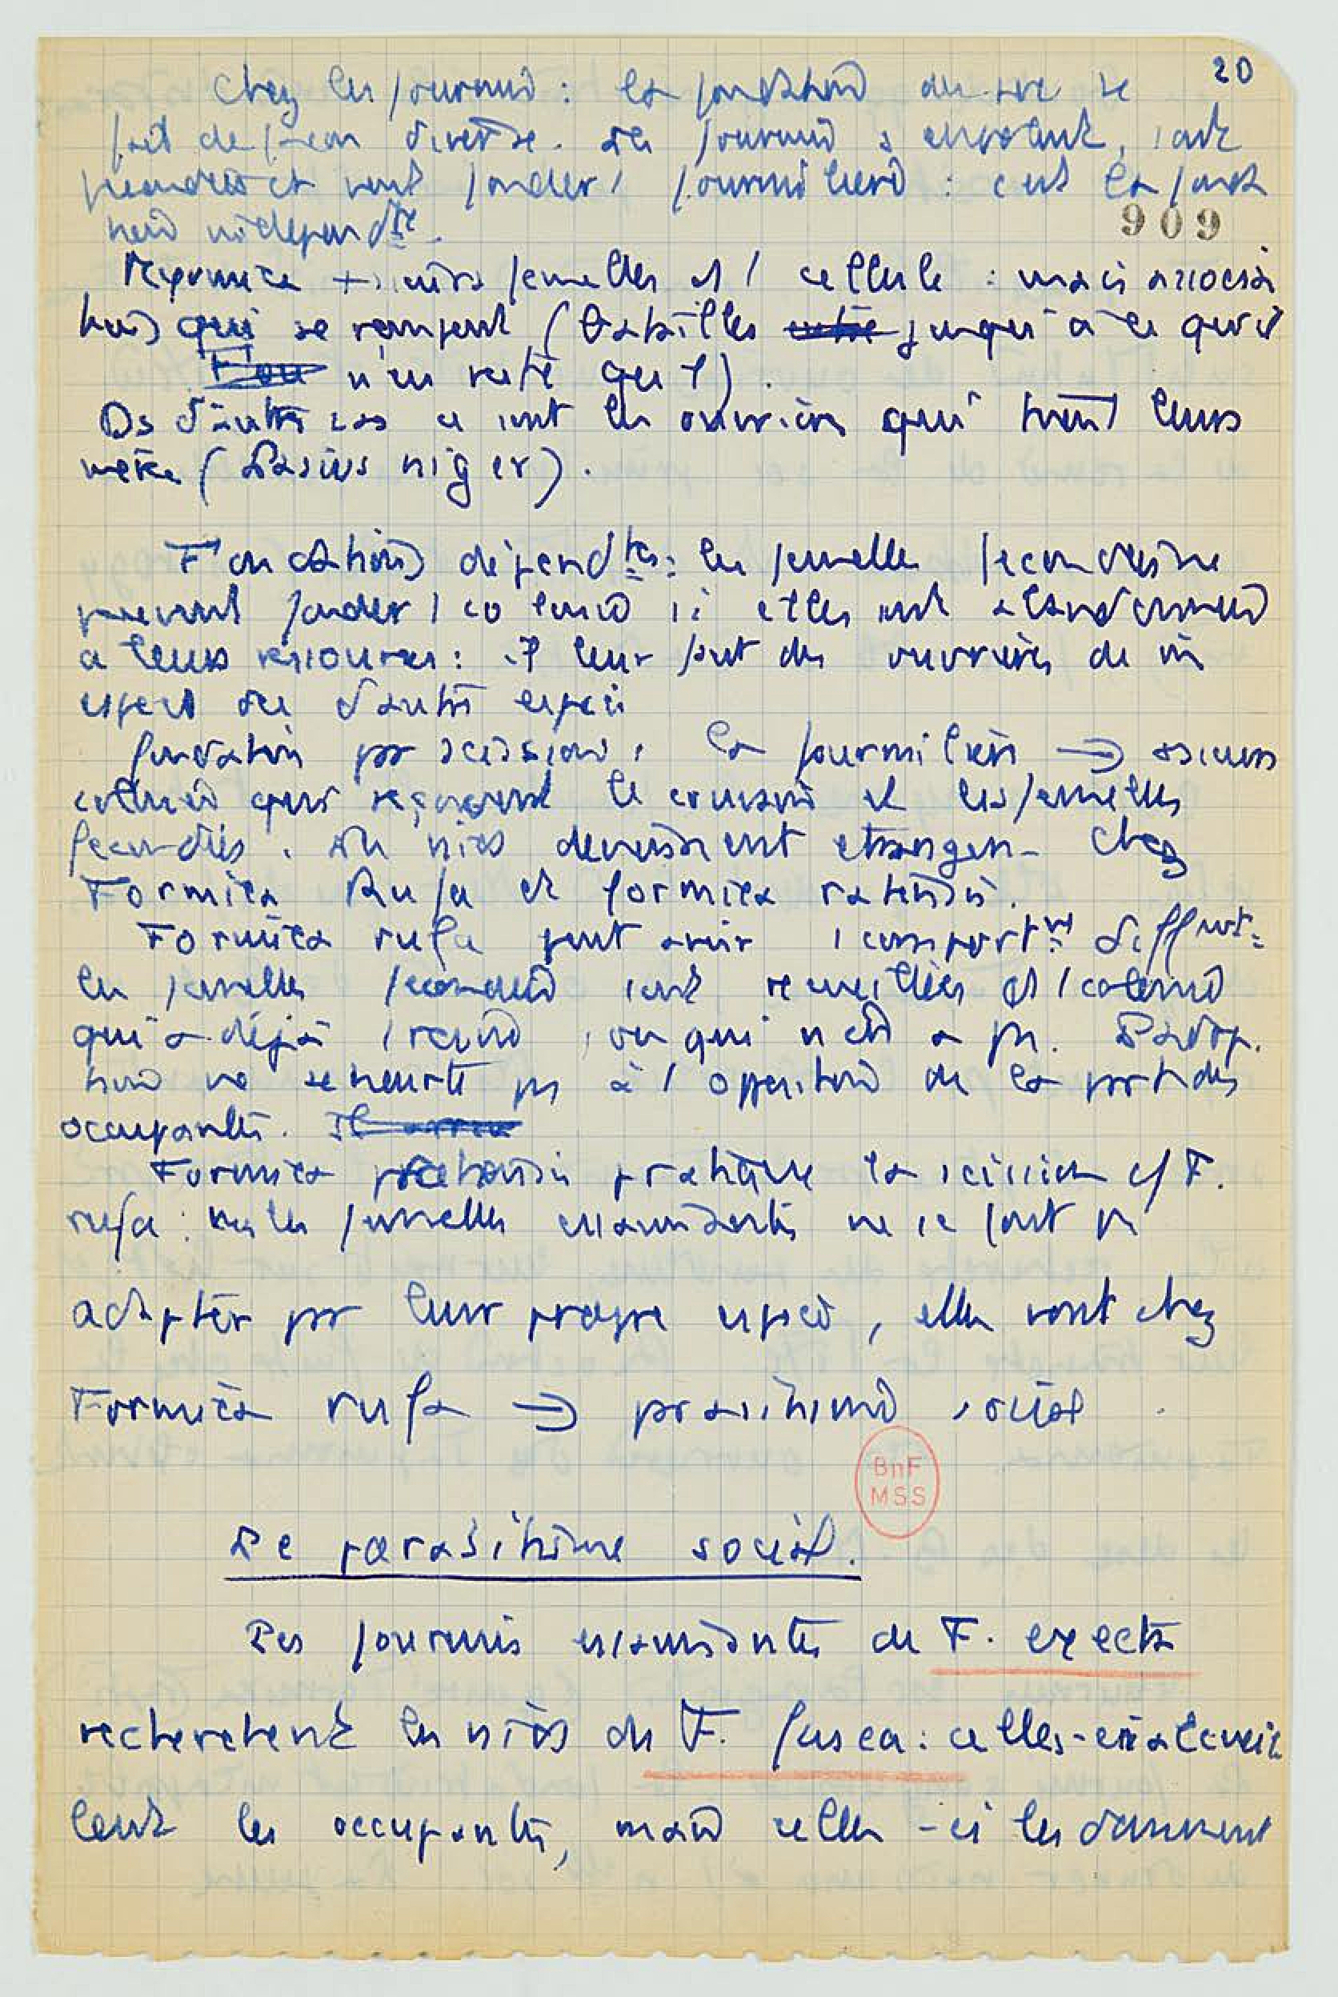 20
Chez les fourmis : la fondation du nid se
fait de façon diverse. Les fourmis s'envolent, sont
fécondées et vont fonder 1 fourmilière : c'est la fonda
tion indépendte.
909
Myrmica + sieurs femelles ds 1 cellule : mais associa
tions qui se rompent (batailles jusqu'à ce qu'il
n'en reste qu'1).
Ds d'autres cas ce sont les ouvrières qui tuent leurs
mères (Lasius niger).
Fondations dépendtes : les femelles fécondées ne
peuvent fonder 1 colonie si elles sont abandonnées
a leurs ressources : il leur faut des ouvrières de
espèce ou d'autres espèces
fondation par scission : la fourmilière → essaims
colonie qui reçoivent le couvain et les femelles
fécondées. Les nids deviennent étrangers. Chez
Formica Rufa et formica
Formica rufa peut avoir 1 comportmt diffrt :
les femelles fécondées sont recueillies ds 1 colonie
qui a déjà 1 reine, ou qui n'en a pas. L'adop.
tion ne se heurte pas à l'opposition de la part des
occupantes.
Formica pratique la scission c/ F.
rufa : mais les femelles essaimantes ne se font pas
adopter par leur propre espèce, elles vont chez
Formica rufa → parasitisme social.
BnF
MSS
Le parasitisme social.
Les fourmis essaimantes de F. execta
recherchent les nids de F. fusca : celles-ci
les occupantes, mais celles-ci les dominent